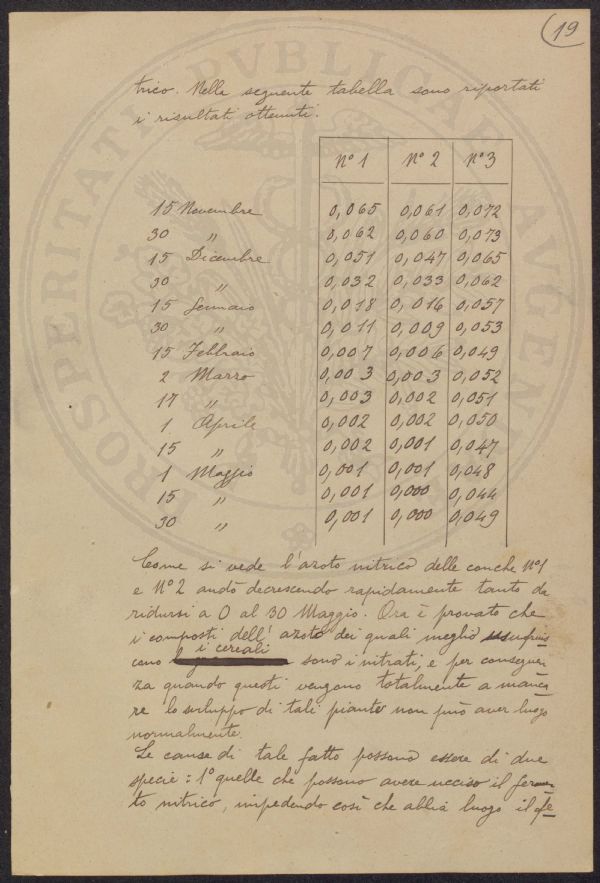 19
trico. Nelle seguente tabella sono riportati
i risultati ottenuti.
N° 1 N° 2 N° 3
15 Novembre 0,065 0,061 0,072
30 " 0,062 0,060 0,073
15 Dicembre 0,051 0,047 0,065
30 " 0,032 0,033 0,062
15 Gennaio 0,018 0,016 0,057
30 " 0,011 0,009 0,053
15 Febbraio 0,007 0,006 0,049
2 Marzo 0,003 0,003 0,052
17 " 0,003 0,002 0,051
1 Aprile 0,002 0,002 0,050
15 " 0,002 0,001 0,047
1 Maggio 0,001 0,001 0,048
15 " 0,001 0,000 0,044
30 " 0,001 0,000 0,049
Come si vede l'azoto nitrico delle conche N°1
e N°2 andò decrescendo rapidamente tanto da
ridursi a 0 al 30 Maggio. Ora è provato che
i composti dell'azoto dei quali meglio usufruis
cono i cereali sono i nitrati, e per conseguen
za quando questi vengono totalmente a manca
re lo sviluppo di tali piante non può aver luogo
normalmente.
Le cause di tale fatto possono essere di due
specie: 1° quelle che possono avere ucciso il fermen
to nitrico, impedendo così che abbia luogo il fe
PROSPERITATI PVBLICAE AVGENDAE